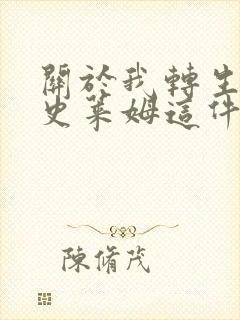 關於我轉生
史萊姆這件
陳脩茂